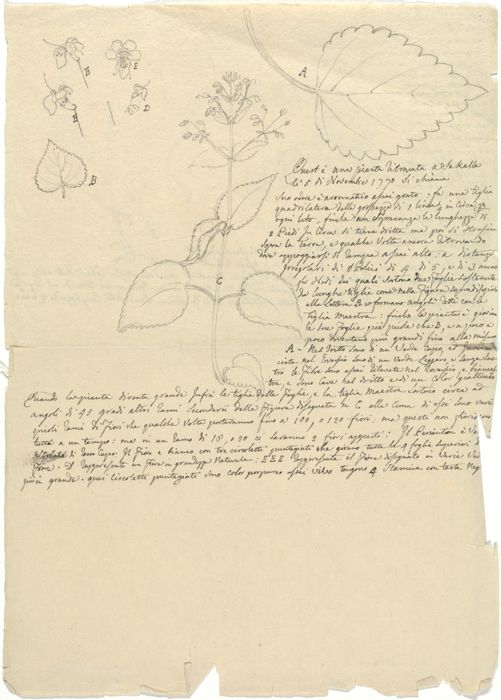 B
E
B
D
B
A
C
Quest è una pianta ritrovata a Sakalla
li 5 di Novembre 1770 si chiama
Suo odore è aromatico assai grato. fa una tiglia
quadrilatera della grossezza di 1 linea ½ in circa
ogni lato, finche non sormonta la lunghezza di
2 Piedi In Circa si tiene dritta ma poi si
sopra la Terra, e qualche Volta ancora Ritrovando
ove appoggiarsi si rampa assai alto: a distanza
irregolari di Pollici di 4 di 5, e di 3 anco
fa Nodi dai quali sortono due foglie sostenute
da lunghe tiglie come nella Figura
alla lettera B e formano angoli retti con la
tiglia Maestra: finche la pianta è giovine
le sue foglie più picole che B, e a poco a
poco diventano più grandi fino alla misura
A - Nel dritto sono di un Verde Cupo, ed
nel rovescio sono di un Verde Leggero, e
le fibre sono assai rilevate nel Rovescio, e
e sono cave nel dritto e di un color gialliccio
Quando la pianta diventa grande Infra le tiglie delle foglie, e la tiglia Maestra sortono circa ad
angoli di 45 gradi altri rami Secondarj della Figura disegnata in C alla cima di essi sono varj
piccoli rami di Fiori che qualche Volta porteranno fino a 100, o 120 fiori, ma questi non fioriscono
tutti a un tempo: ma in un ramo di 18, o 20 ci saranno 2 fiori aperti. Il Perianton è
di Verde Cupo: Il Fiore è bianco con tre circoletti puntegiati che girano tutte le 4 foglie superiori
fiore. D rappresenta un fiore in grandezza Naturale: E E E Rappresenta il fiore disegnato in varie
più in grande. quei circoletti puntegiati sono color porpureo assai vivo tengono 4 Stamina con testa